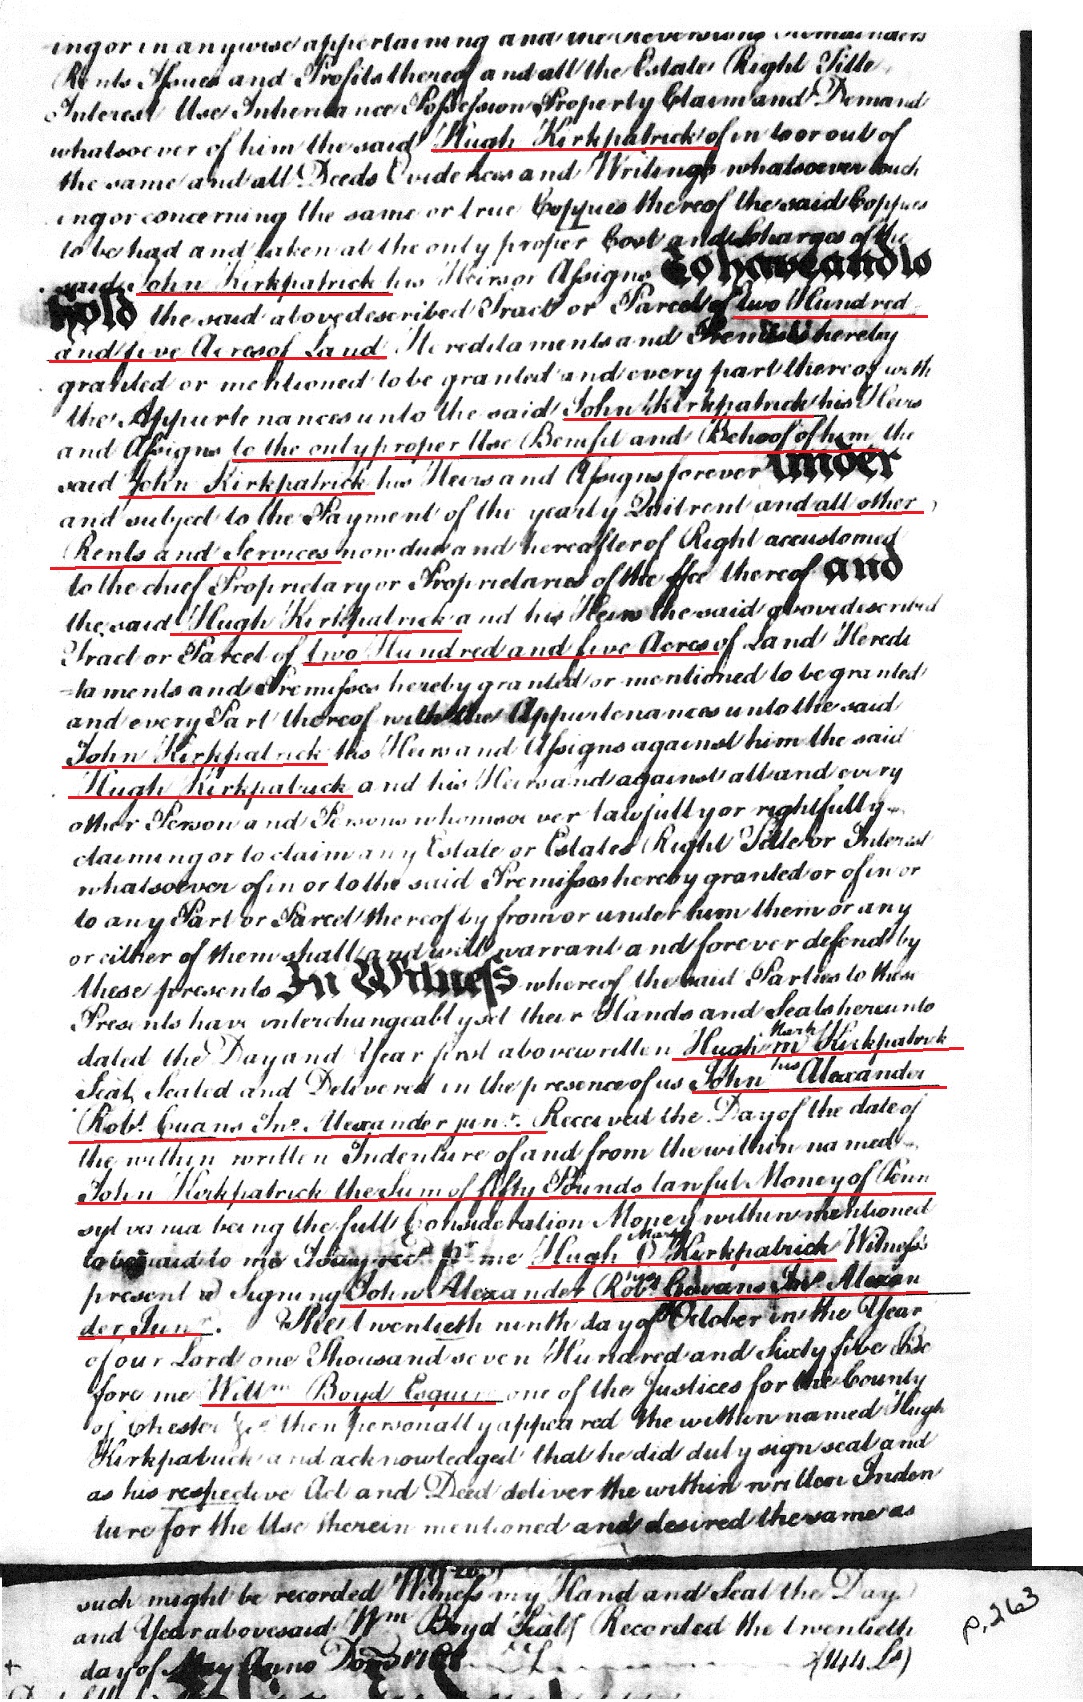 ingor in anywise appertaining and the Reversions Remainders
Rents Issues and Profits thereof and all the Estate Right Title
Interest Use Inheritance Possession Property Claim and Demand
whatsoever of him the said Hugh Kirkpatrick of in to or out of
the same and all Deeds Evidences and Writings whatsoever touch
ing or concerning the same or true Coppies thereof the said Coppies
to be had and taken at the only proper Cost and Charges of the
said John Kirkpatrick his Heirs or Assigns To have and to
Hold the said above described Tract or Parcel of two Hundred
and five Acres of Land Hereditaments and Premises hereby
granted or mentioned to be granted and every part thereof with
the Appurtenances unto the said John Kirkpatrick his Heirs
and Assigns to the only proper Use Benefit and Behoof of him the
said John Kirkpatrick his Heirs and Assigns forever under
and subject to the Payment of the yearly Quitrent and all other
Rents and Services now due and hereafter of Right accustomed
to the chief Proprietary or Proprietaries of the ffee thereof and
the said Hugh Kirkpatrick and his Heirs the said above described
Tract or Parcel of two Hundred and five Acres of Land Heredi
=taments and Premisses hereby granted or mentioned to be granted
and every Part thereof with the Appurtenances unto the said
John Kirkpatrick his Heirs and Assigns against him the said
Hugh Kirkpatrick and his Heirs and against all and every
other Person and Persons whomsoever lawfully or rightfully
claiming or to claim any Estate or Estates Right Title or Interest
whatsoever of in or to the said Premisses hereby granted or of in or
to any Part or Parcel thereof by from or under him them or any
or either of them shall and will warrant and forever defend by
these presents In Witness whereof the said Parties to these
Presents have interchangeably set their Hands and Seals hereunto
dated the Day and Year first above written Hugh m Mark Kirkpatrick
Seal, Sealed and Delivered in the presence of us John his Alexander
Robt. Evans Jno. Alexander junr. Received the Day of the date of
the within written Indenture of and from the within named
John Kirkpatrick the Sum of fifty Pounds lawful Money of Penn
sylvania being the full Consideration Money within mentioned
to be paid to me I say recd. pr me Hugh Mark Kirkpatrick Witness
present at Signing John Alexander Robt. Evans Jno. Alexan
der Junr. The twentieth ninth day of October in the Year
of our Lord one Thousand seven Hundred and Sixty five Be
fore me Willm Boyd Esquire one of the Justices for the County
of Chester &c. then personally appeared the within named Hugh
Kirkpatrick and acknowledged that he did duly sign seal and
as his respective Act and Deed deliver the within written Inden
ture for the Use therein mentioned and desired the same as
such might be recorded Witness my Hand and Seal the Day
and Year abovesaid Wm Boyd Seal Recorded the twentieth
day of May Anno Dom 1766 (44 Ls)
p. 263